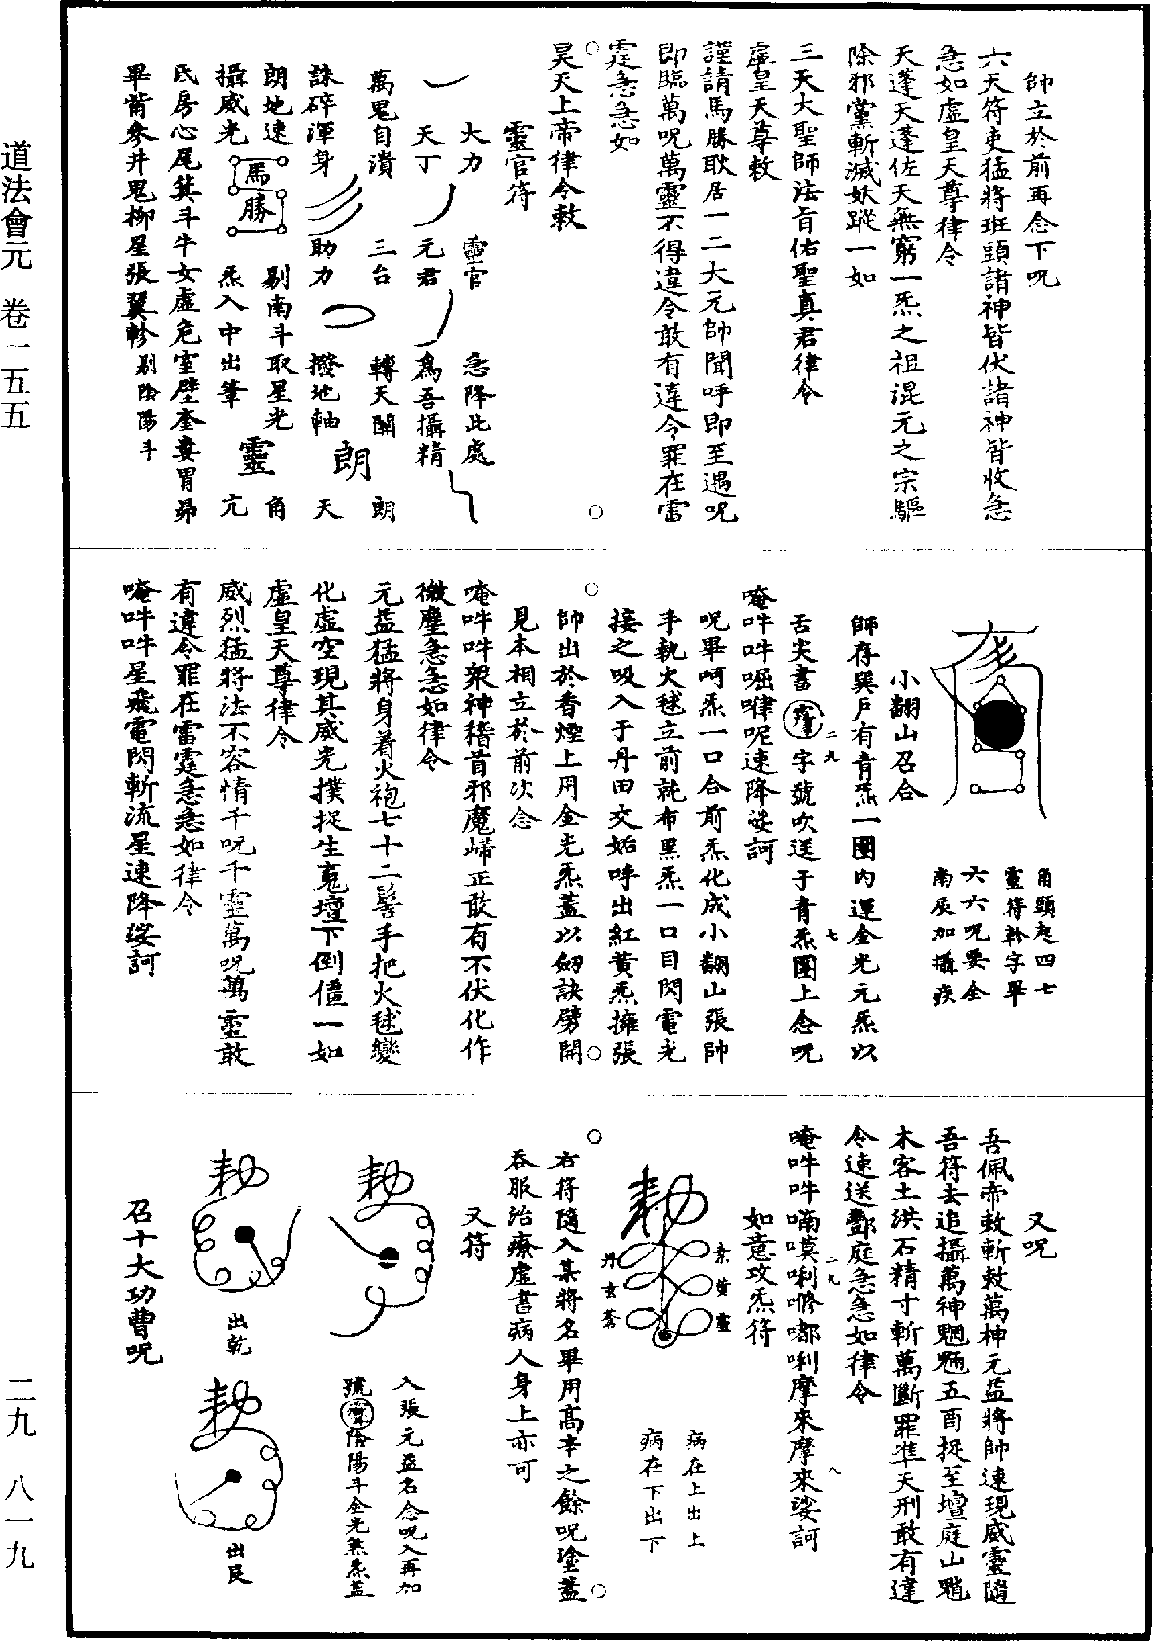 道法會元　卷一五五
二九　八一九
帥立於前再念下呪
六天符吏猛將班頭諸神皆伏諸神皆收急
急如虛皇天尊律令
天蓬天蓬佐天無窮一炁之祖混元之宗驅
除邪黨斬滅妖蹤一如
三天大聖師法旨佑聖真君律令
虛皇天尊敕
謹請馬勝耿居一二大元帥聞呼即至遇呪
即臨萬呪萬靈不得違令敢有違令罪在雷
霆急急如
昊天上帝律令敕
靈官符
大力　靈官　急降此處
天丁　元君　為吾攝精
萬鬼自潰　三台　轉天關　朗
誅碎渾身　助力　撥地軸　天
朗
朗地速　剔南斗取星光　角
馬勝
攝威光　炁入中出筆　靈　亢
氐房心尾箕斗牛女虛危室壁奎婁胃昴
畢觜參井鬼柳星張翼軫　剔陰陽斗
角頭起四七
靈符幹字單
六六呪要全
南辰加攝疾
小翻山召合
師存巽戶有青炁一團內運金光元炁以
舌尖書字號吹送于青炁團上念呪
唵吽吽啒㗚呢速降娑訶
呪畢呵炁一口合前炁化成小翻山張帥
手執火毬立前訖布黑炁一口目閃電光
接之吸入于丹田交姤呼出紅黃炁擁張
帥出於香煙上用金光炁蓋以劒訣劈開
見本相立於前次念
唵吽吽眾神稽首邪魔歸正敢有不伏化作
微塵急急如律令
元益猛將身着火袍七十二髻手把火毬變
化虛空現其威光撲捉生䰟壇下倒僵一如
虛皇天尊律令
威烈猛將法不容情千呪千靈萬呪萬靈敢
有違令罪在雷霆急急如律令
唵吽吽星飛電閃斬流星速降娑訶
又呪
吾佩帝敕斬敕萬神元益將帥速現威靈隨
吾符去追攝萬神魍魎五酉捉至壇庭山魈
木客土洪石精寸斬萬斷罪準天刑敢有違
令速送酆庭急急如律令
唵吽吽喃嘆唎嘟唎摩來摩來娑訶
如意攻炁符
赤黃靈
丹玄蒼
病在上出上
病在下出下
右符隨入某將名畢用高本之餘呪塗蓋
吞服治療虛書病人身上亦可
又符
入張元益名念呪入再加
號陰陽斗金光煞炁蓋
出乾
出艮
召十大功曹呪